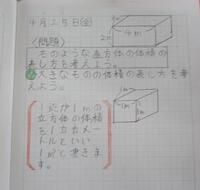 4月25日(金)
〈問題〉
ものような直方体の体積の
表し方を考えよう。
大きなものの体積の表し方を考
えよう。
1辺が1mの
立方体の体積
を1立方メー
トルといい
1m³と書きま
す。
2m
4m
1m
1m